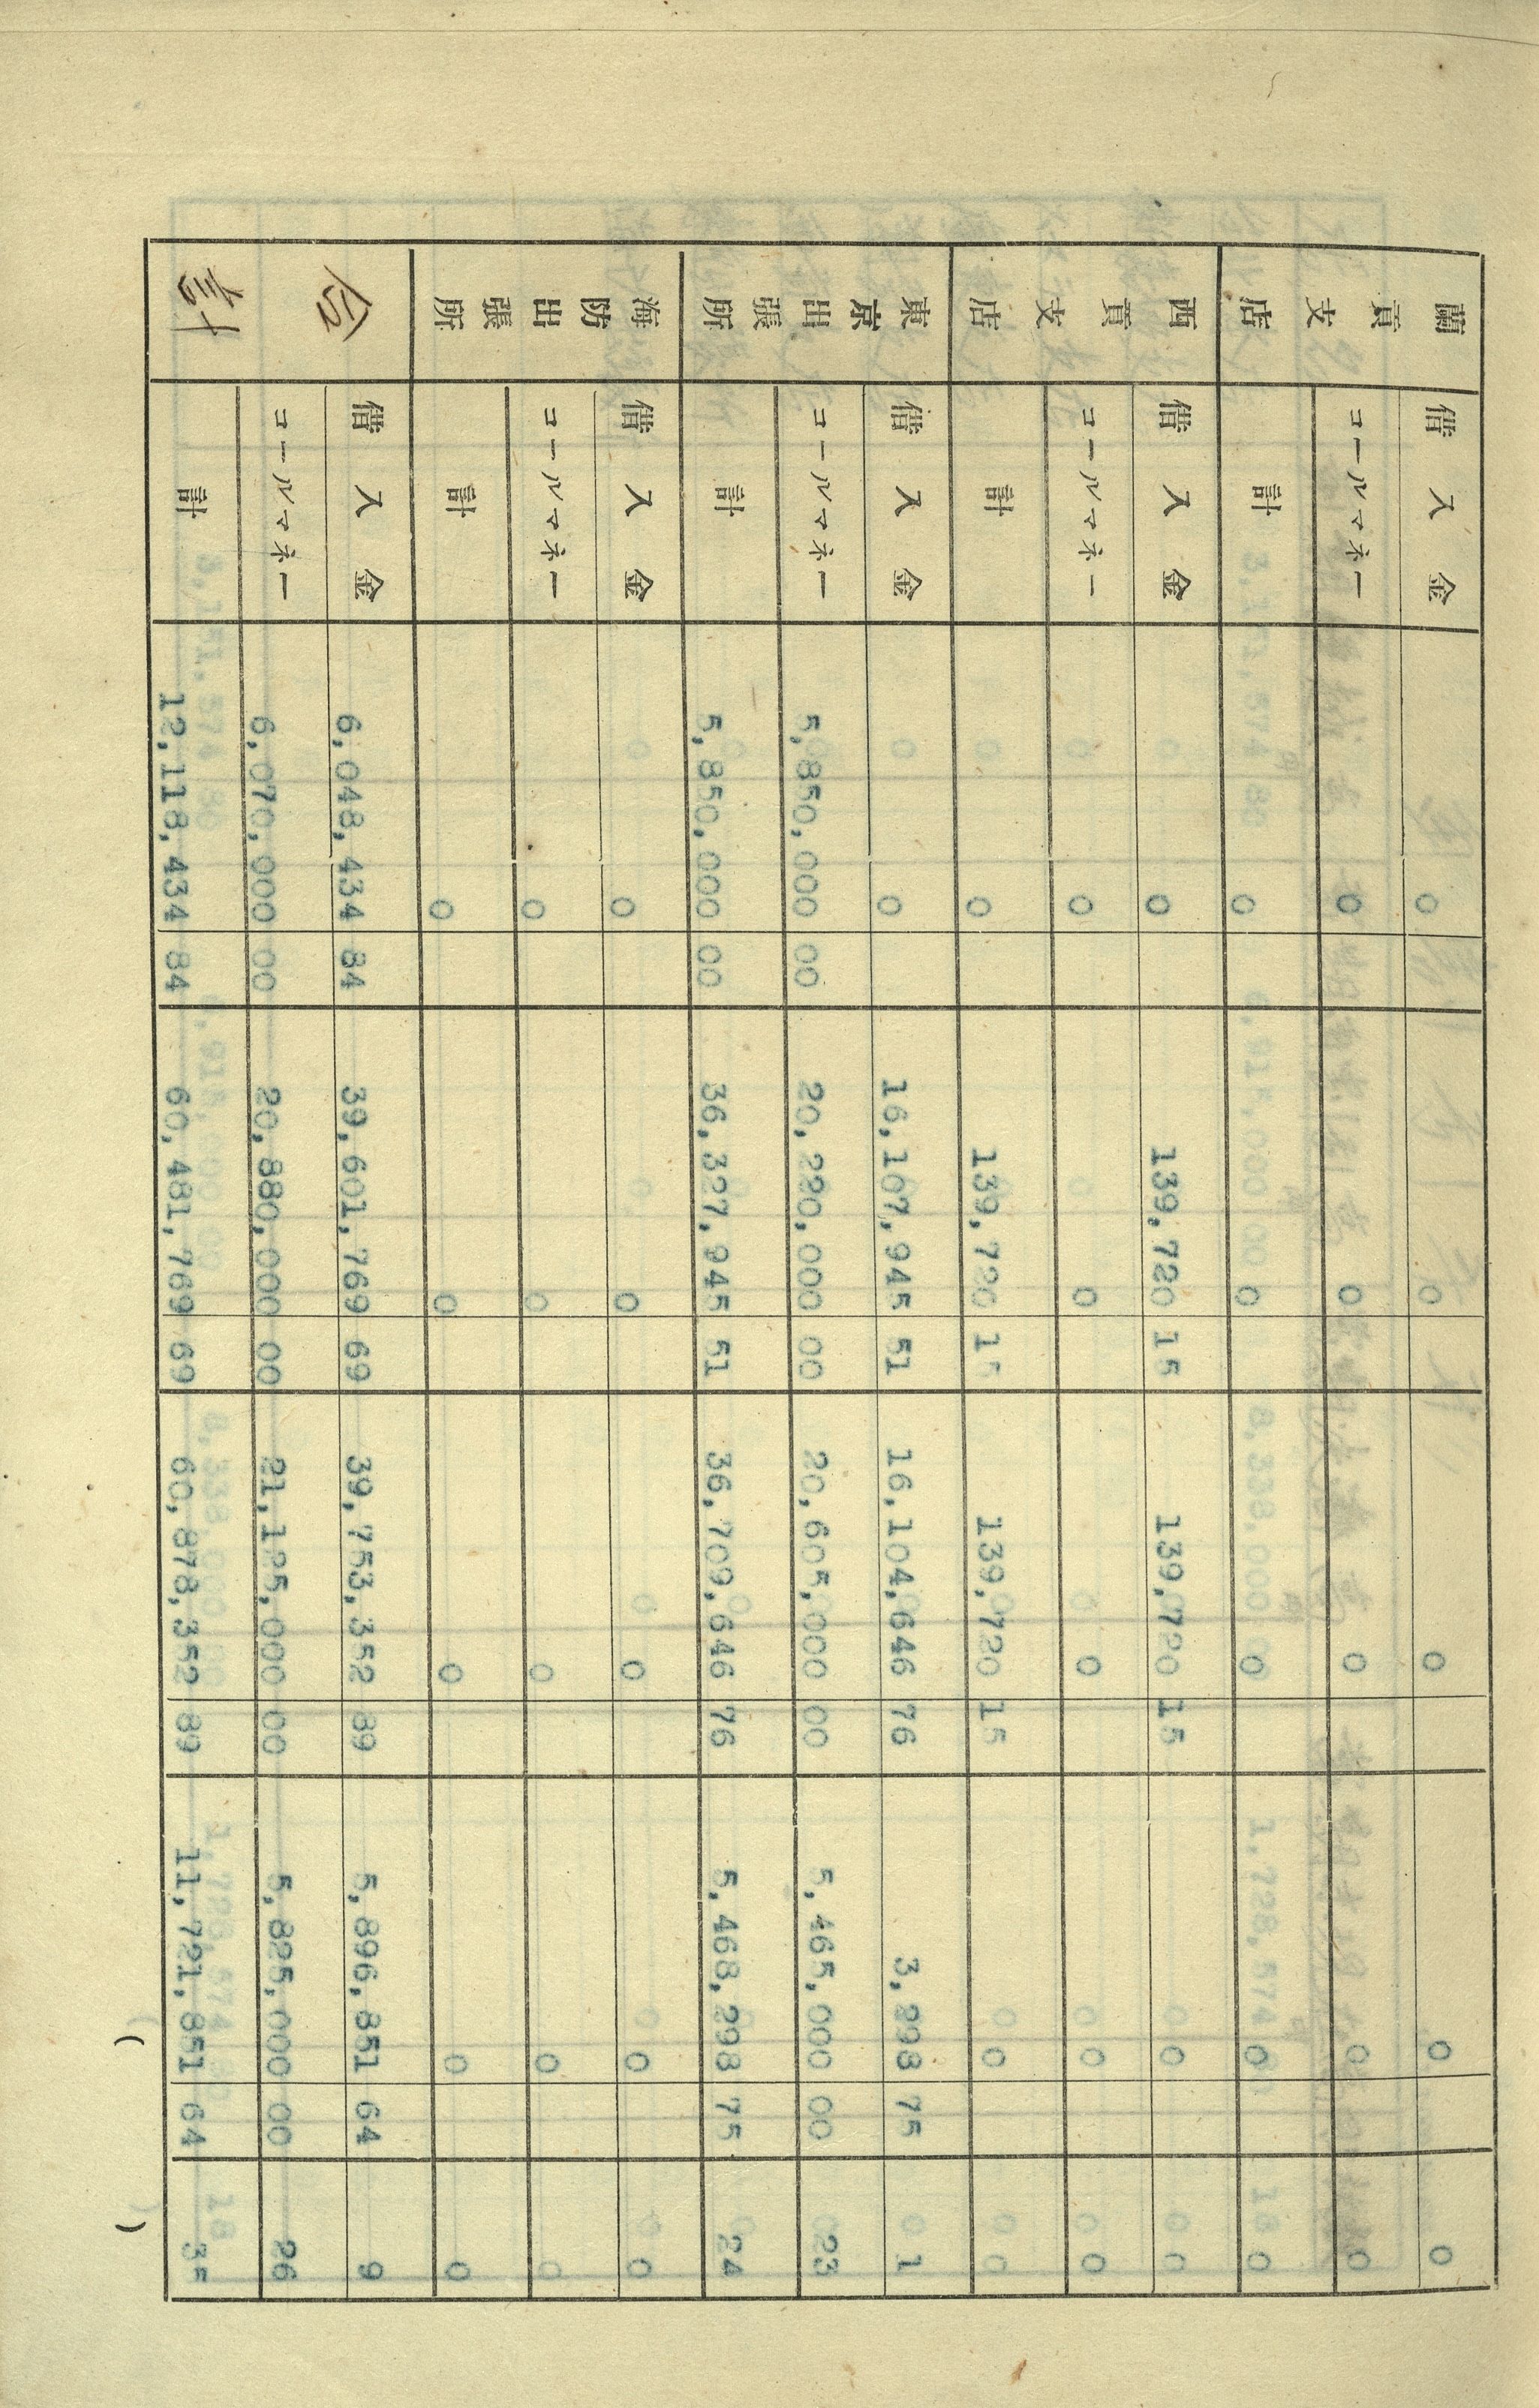 蘭貢支店 借入金 0 0 0 0 0
コールマネー 0 0 0 0 0
計 0 0 0 0 0
西貢支店 借入金 0 139,720 15 139,720 15 0 0
コールマネー 0 0 0 0 0
計 0 139,720 15 139,720 15 0 0
東京出張所 借入金 0 16,107,945 51 16,104,646 76 3,298 75 1
コールマネー 5,850,000 00 20,220,000 00 20,605,000 00 5,465,000 00 23
計 5,850,000 00 36,327,945 51 36,709,646 76 5,468,298 75 24
海防出張所 借入金 0 0 0 0 0
コールマネー 0 0 0 0 0
計 0 0 0 0 0
合計 借入金 6,048,434 84 39,601,769 69 39,753,352 89 5,896,851 64 9
コールマネー 6,070,000 00 20,880,000 00 21,125,000 00 5,825,000 00 26
計 12,118,434 84 60,481,769 69 60,878,352 89 11,721,851 64 35
( )